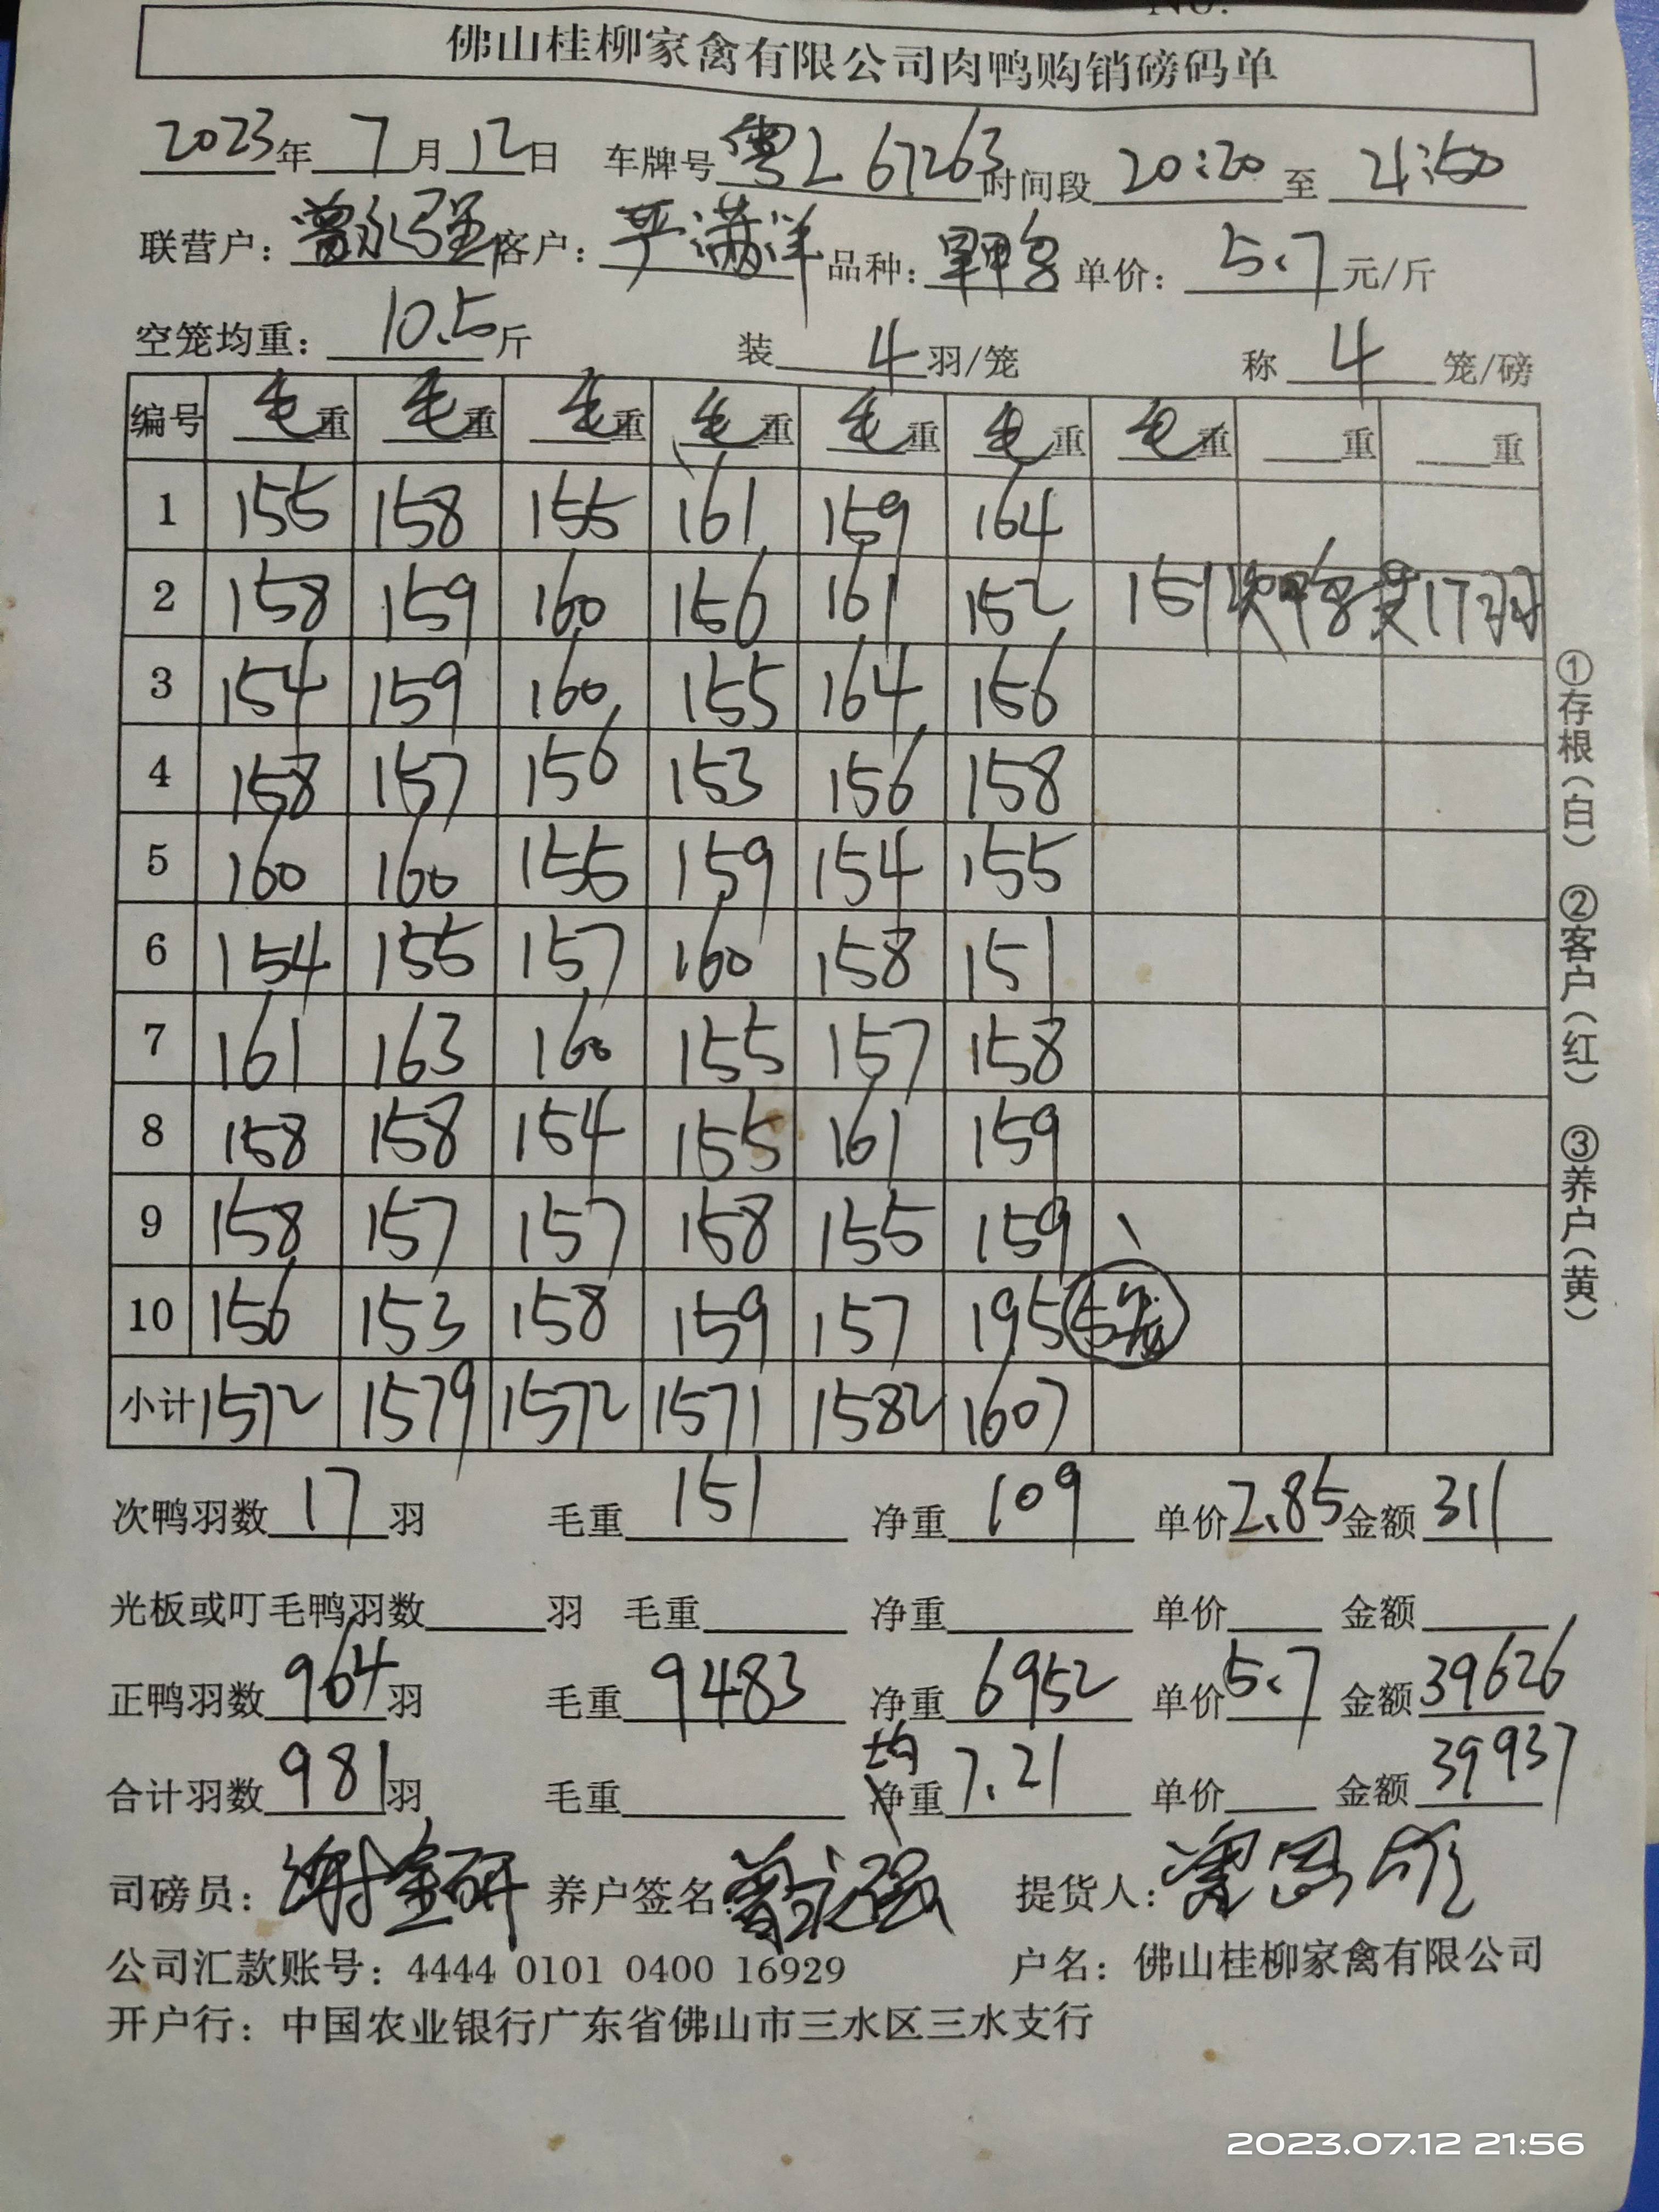 佛山桂柳家禽有限公司肉鸭购销磅码单
2023年 7月12日 车牌号 粤L 67263 时间段 20:20 至 21:50
联营户：曾永强 客户：严满洋 品种： 单价：5.7元/斤
空笼均重：10.5斤 装 4 羽/笼 称 4 笼/磅
编号 毛重 毛重 毛重 毛重 毛重 毛重 毛重 重 重
1 155 158 155 161 159 164
2 158 159 160 156 161 152 151 次鸭装17羽
3 154 159 160 155 164 156
4 158 157 156 153 156 158
5 160 160 155 159 154 155
6 154 155 157 160 158 151
7 161 163 160 155 157 158
8 158 158 154 155 161 159
9 158 157 157 158 155 159
10 156 153 158 159 157 195 5笼
小计 1572 1579 1572 1571 1582 1607
①存根(白) ②客户(红) ③养户(黄)
次鸭羽数 17 羽 毛重 151 净重 109 单价 2.85 金额 311
光板或叮毛鸭羽数 羽 毛重 净重 单价 金额
正鸭羽数 964 羽 毛重 9483 净重 6952 单价 5.7 金额 39626
合计羽数 981 羽 毛重 均净重 7.21 单价 金额 39937
司磅员：谢金研 养户签名：曾永强 提货人：
公司汇款账号：4444 0101 0400 16929 户名：佛山桂柳家禽有限公司
开户行：中国农业银行广东省佛山市三水区三水支行
2023.07.12 21:56